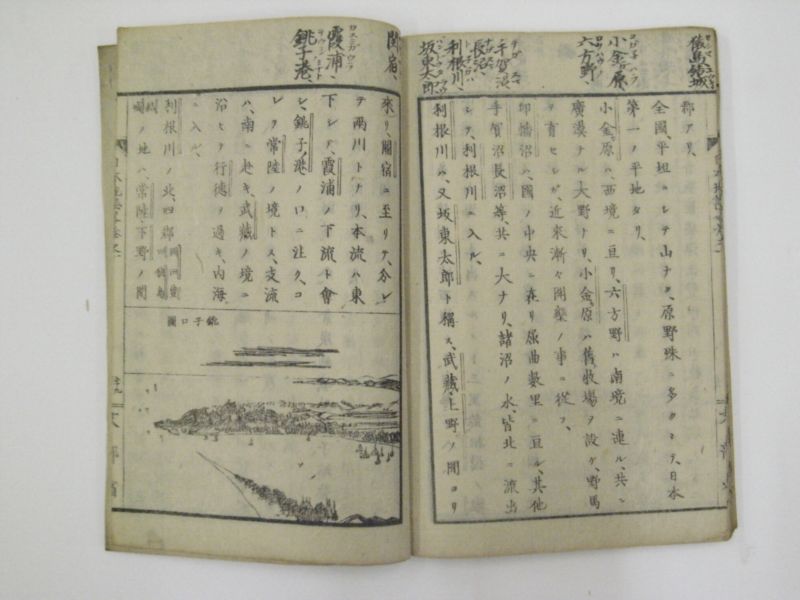 猿島結城
小金原、
六方野、
手賀沼
長沼、
利根川、
坂東太郎
郡アリ、
全國、平坦ニシテ山ナク、原野殊ニ多クシテ、日本
第一ノ平地タリ、
小金ノ原ハ、西境ニ亘リ、六方野ハ南境ニ連ル、共ニ
廣漠ナル大野ナリ、小金ノ原ハ舊牧場ヲ設ケ、野馬
ヲ育セシガ、近來漸ク開墾ノ事ニ從フ、
印旛沼ハ、國ノ中央ニ在リ、屈曲數里ニ亘ル、其他
手賀沼長沼等、共ニ大ナリ、諸沼ノ水、皆北ニ流出
シテ、利根川ニ入ル、
利根川ハ、又坂東太郎ト稱ス、武藏、上野ノ間ヨリ
関宿、
霞浦、
銚子港、
來リ、關宿ニ至リテ、分レ
テ兩川トナリ、本流ハ東
下シテ、霞浦ノ下流ト會
シ、銚子ノ港ノ口ニ注ク、コ
レヲ常陸ノ境トス、支流
ハ、南ニ赴キ、武藏ノ境ニ
沿ヒテ行德ヲ過キ、内海
ニ入ル、
利根川ノ北、四郡
ノ地ハ、常陸、下野ノ間
銚子口圖
文部省